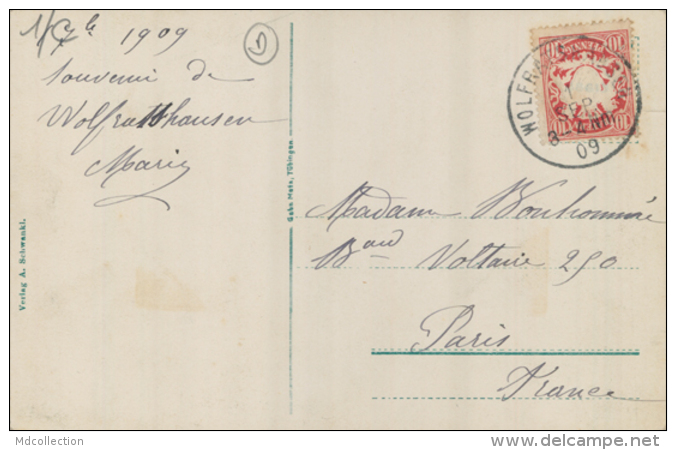 1/7bre 1909
Souvenir de
Wolfratshausen
Marie
Verlag A. Schwankl.
Gebr. Metz, Tübingen
10 10
WOLFRATSHAUSEN
1
SEP.
3-4 NM.
09
Madame Bonhommé
Bard Voltaire 250
Paris
France
Mdcollection
www.delcampe.net